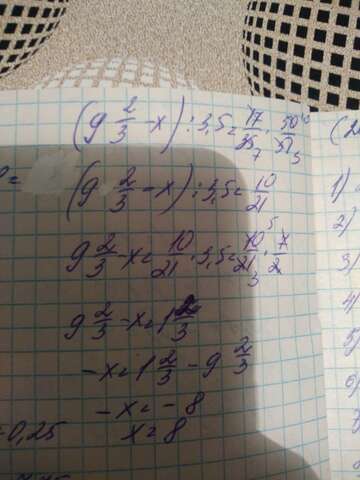 (9 2/3 - x) : 3,5 = 17/35 7 · 50 10/51 3
(9 2/3 - x) : 3,5 = 10/21
9 2/3 - x = 10/21 · 3,5 = 10 5/21 3 · 7/2
9 2/3 - x = 1 2/3
- x = 1 2/3 - 9 2/3
- x = - 8
=0,25
x = 8
1)
2)
3)
4)
5)
6)